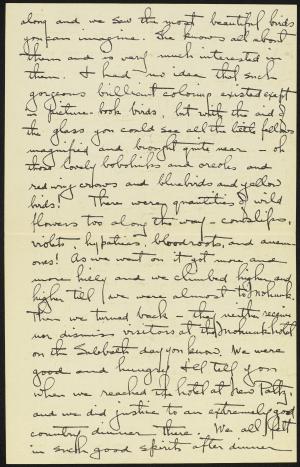 along and we saw the most beautiful birds
you can imagine. She knows all about
them and is very much interested in
them. I had no idea that such
gorgeous brilliant coloring existed except
in picture-book birds, but with the aid of
the glass you could see all the little fellows
magnified and brought quite near - oh
those lovely bobolinks and orioles and
red wing crows and bluebirds and yellow
birds! There were quantities of wild
flowers too along the way - cowslips,
violets, hypaticas, bloodroots, and anem-
ones! As we went on it got more and
more hilly and we climbed higher and
higher till we were almost to Mohunk.
Then we turned back - they neither receive
nor dismiss visitors at the Mohunk hotel
on the Sabbath day you know. We were
good and hungry I'll tell you
when we reached the hotel at New Paltz,
and we did justice to an extremely good
country dinner there. We all felt
in such good spirits after dinner